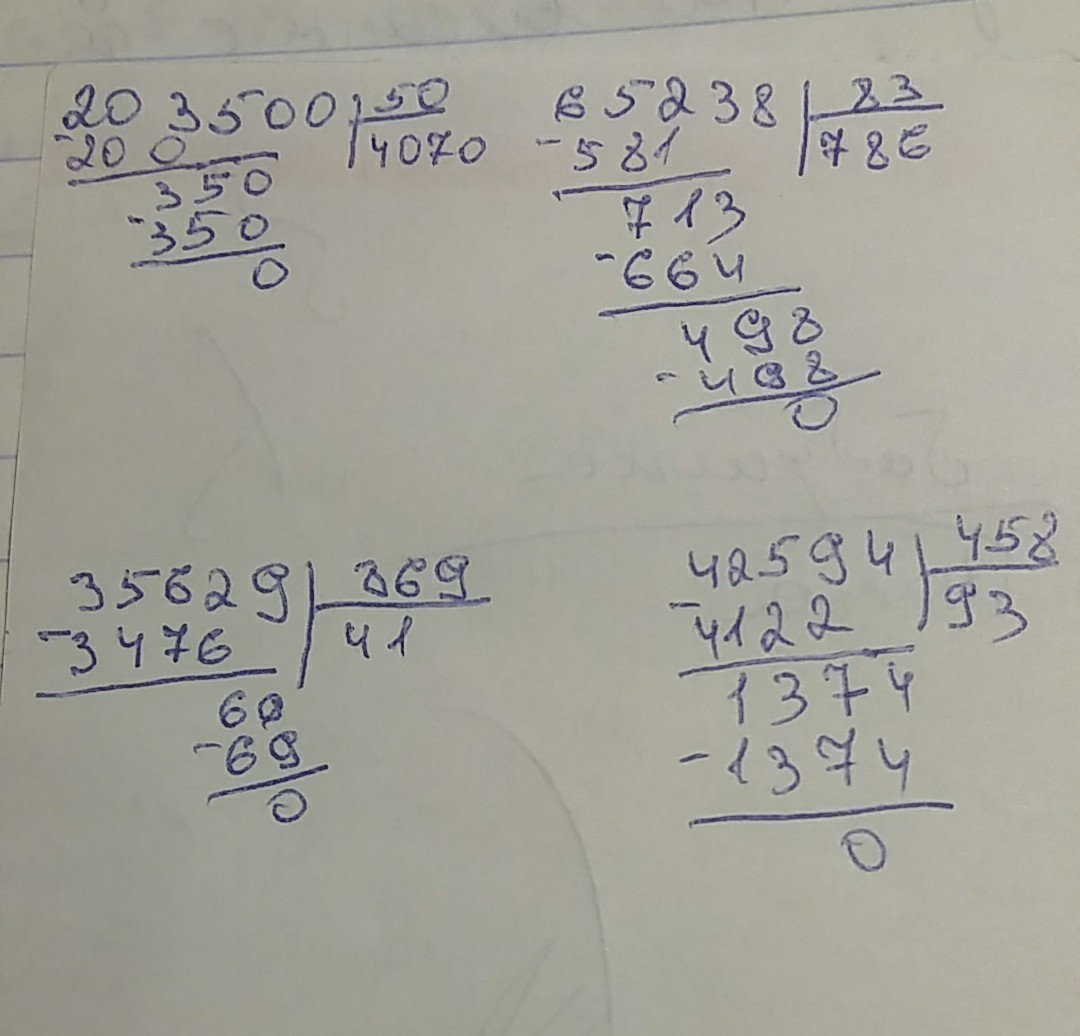 203500 50
-200 4070
350
-350
0
65238 83
-581 786
713
-664
498
-498
0
35629 869
-3476 41
69
-69
0
42594 458
-4122 93
1374
-1374
0